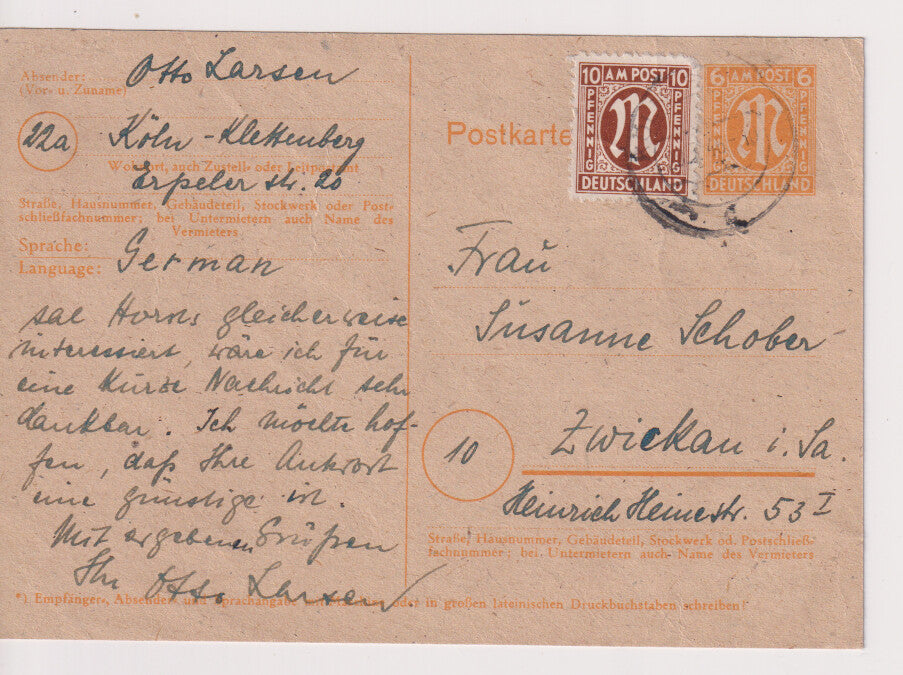 Absender:
Otto Larsen
(Vor- u. Zuname)
22a
Köln-Klettenberg
Wohnort, auch Zustell- oder Leitpostamt
Erpeler Str. 20
Straße, Hausnummer, Gebäudeteil, Stockwerk oder Post-
schließfachnummer; bei Untermietern auch Name des
Vermieters
Sprache:
Language: German
gleicherweise
interessiert, wäre ich für
eine kurze Nachricht sehr
dankbar. Ich möchte hof-
fen, daß Ihre Antwort
eine günstige ist.
Mit ergebenen Grüßen
Ihr Otto Larsen
Postkarte
10 AM POST 10
PFENNIG
M
PFENNIG
DEUTSCHLAND
6 AM POST 6
PFENNIG
M
PFENNIG
DEUTSCHLAND
Frau
Susanne Schober
10
Zwickau i. Sa.
Heinrich Heinestr. 53 I
Straße, Hausnummer, Gebäudeteil, Stockwerk od. Postschließ-
fachnummer; bei Untermietern auch Name des Vermieters
*) Empfänger-, Absender- und Sprachangabe oder in großen lateinischen Druckbuchstaben schreiben!